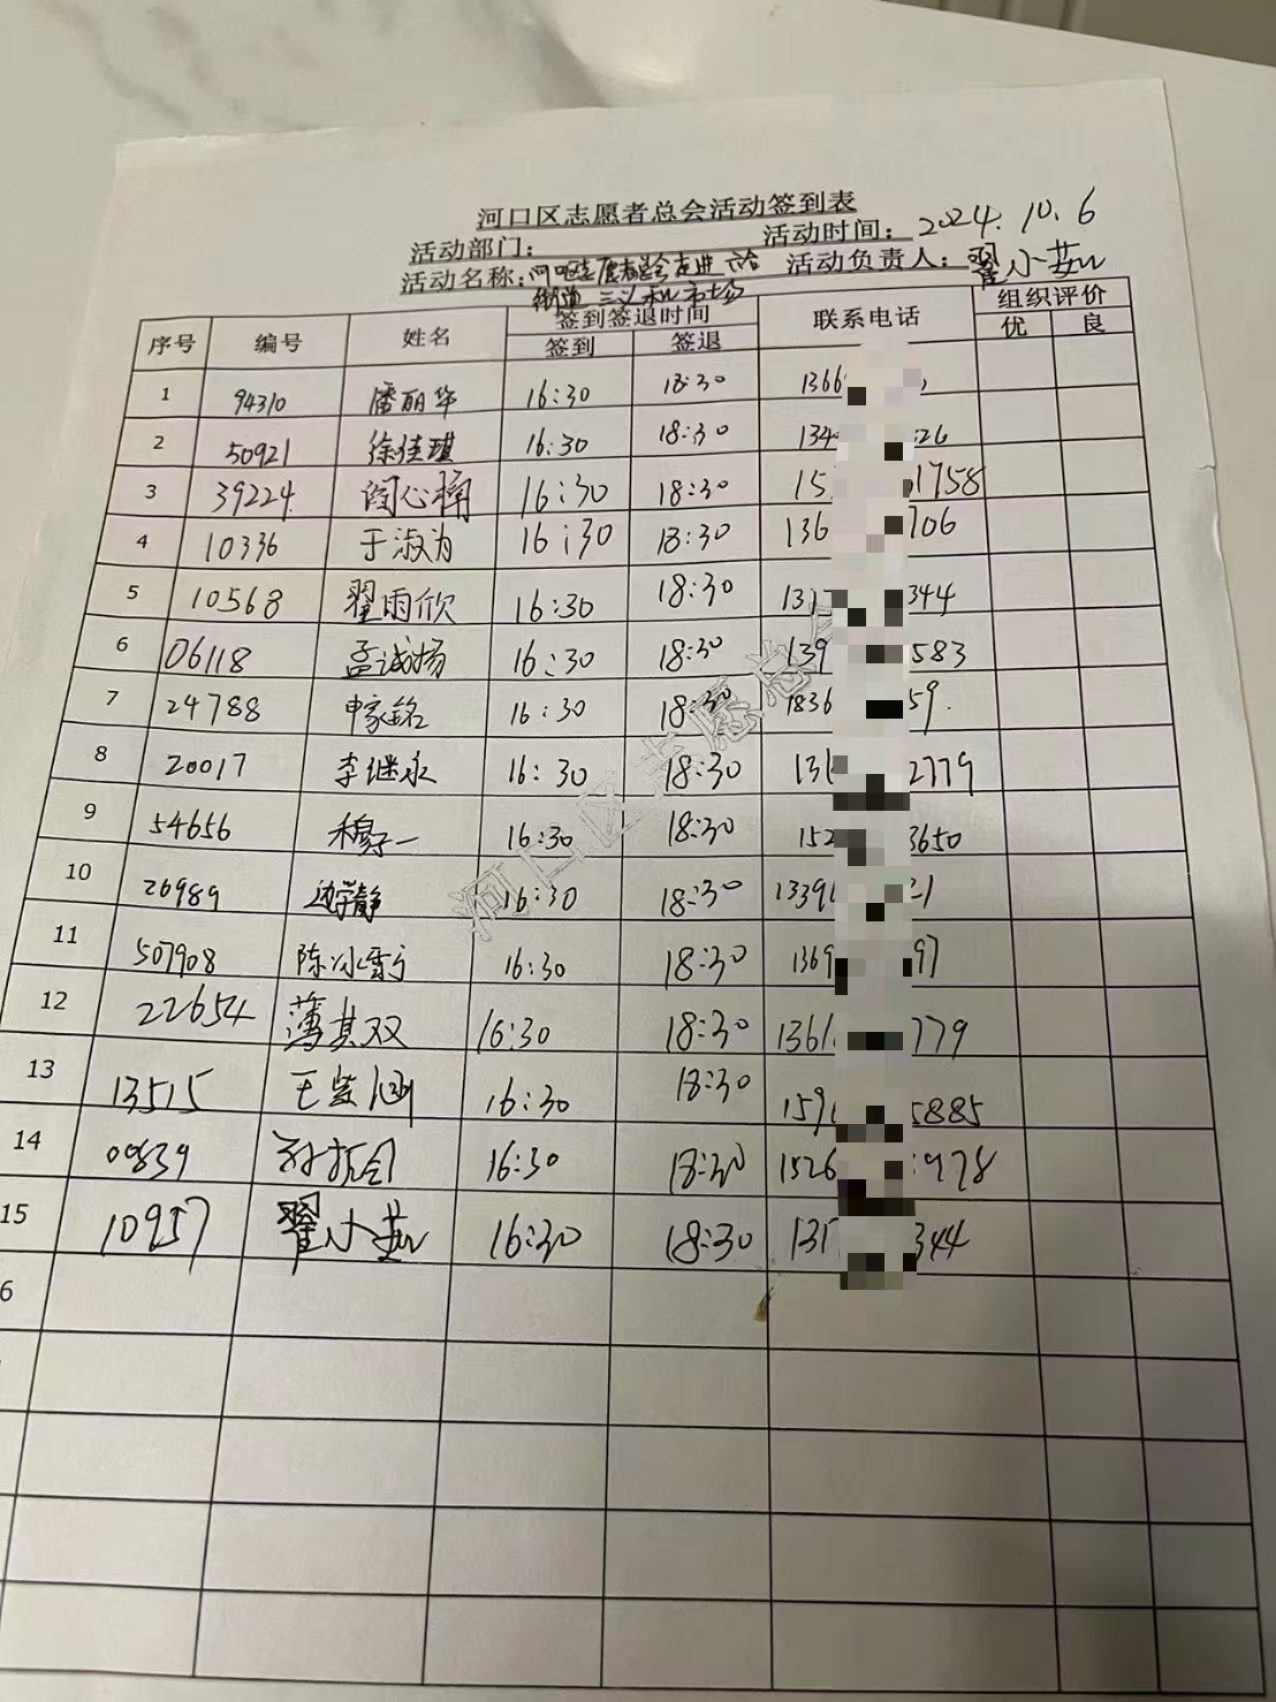 河口区志愿者总会活动签到表
活动部门： 活动时间：2024.10.6
活动名称：河口区志愿者总会走进六合 活动负责人：翟小燕
街道三义和市场
序号 编号 姓名 签到签退时间 联系电话 组织评价
签到 签退 优 良
1 94310 潘丽华 16:30 18:30 1366
2 50921 徐佳琪 16:30 18:30 134 326
3 39224 阎心楠 16:30 18:30 15 1758
4 10336 于淑为 16:30 18:30 136 706
5 10568 翟雨欣 16:30 18:30 1317 344
6 06118 孟诚扬 16:30 18:30 139 583
7 24788 申家铭 16:30 18:30 1836 59.
8 20017 李继永 16:30 18:30 136 2779
9 54656 穆子一 16:30 18:30 152 3650
10 26989 边学静 16:30 18:30 1339 21
11 507908 陈冰 16:30 18:30 1369 97
12 22654 薄其双 16:30 18:30 1361 779
13 13515 王紫涵 16:30 18:30 159 5885
14 09839 16:30 18:30 1526 978
15 10957 翟小燕 16:30 18:30 131 344
6
河口区志愿总会